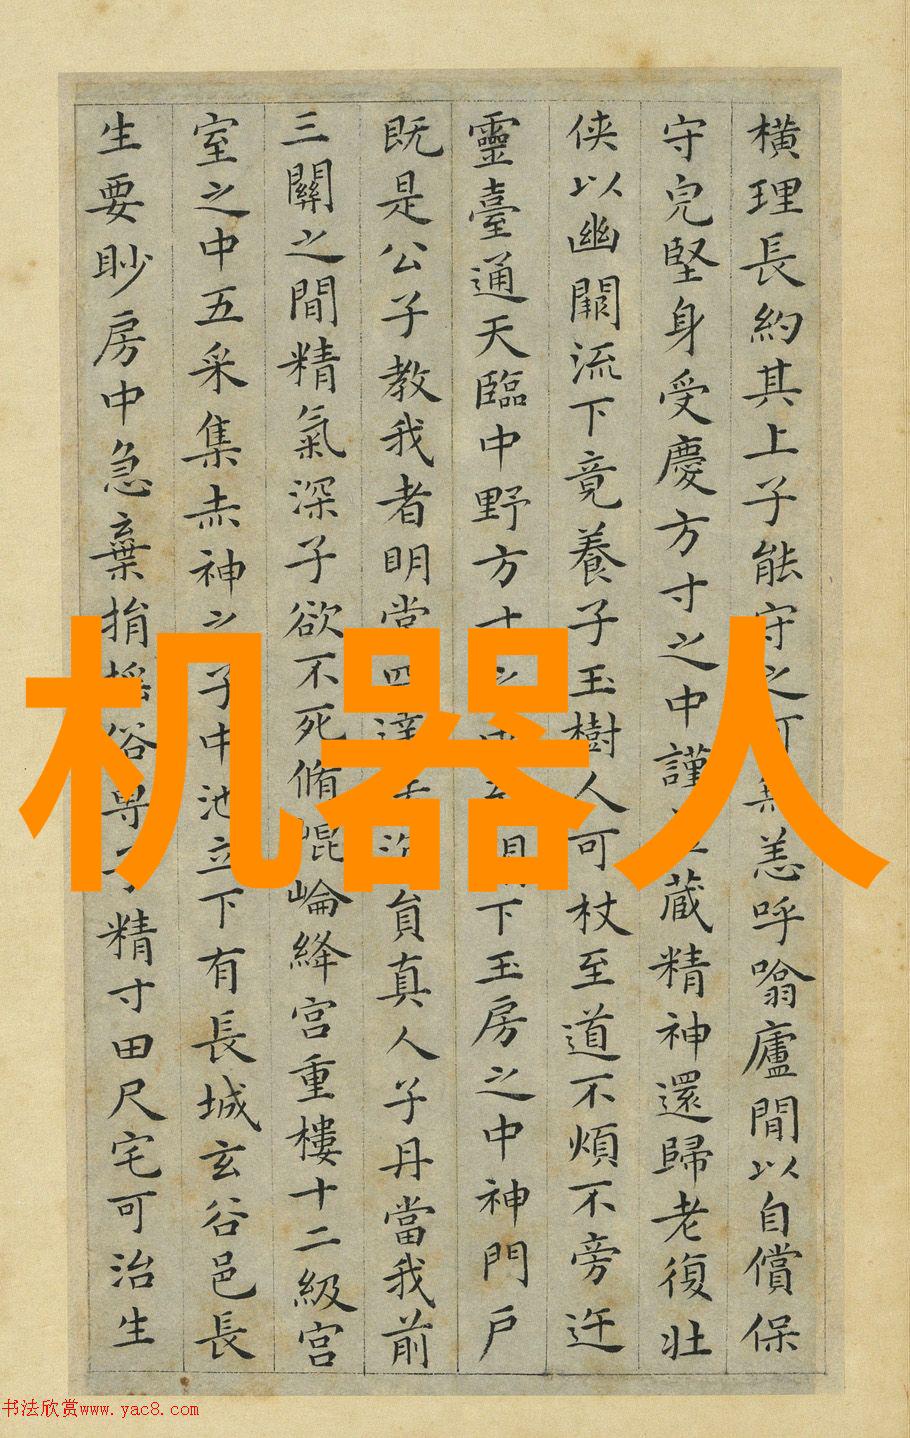 橫理長約其上子能守之可無恙呼噏廬間以自償保
守皃堅身受慶方寸之中謹蓋藏精神還歸老復壯
俠以幽闕流下竟養子玉樹人可杖至道不煩不旁迕
靈臺通天臨中野方寸之中至關下玉房之中神門戶
既是公子教我者明堂四達法海員真人子丹當我前
三關之間精氣深子欲不死脩崐崘絳宮重樓十二級宮
室之中五采集赤神之子中池立下有長城玄谷邑長
生要眇房中急棄捐搖俗專子精寸田尺宅可治生
机器人
书法欣赏www.yac8.com